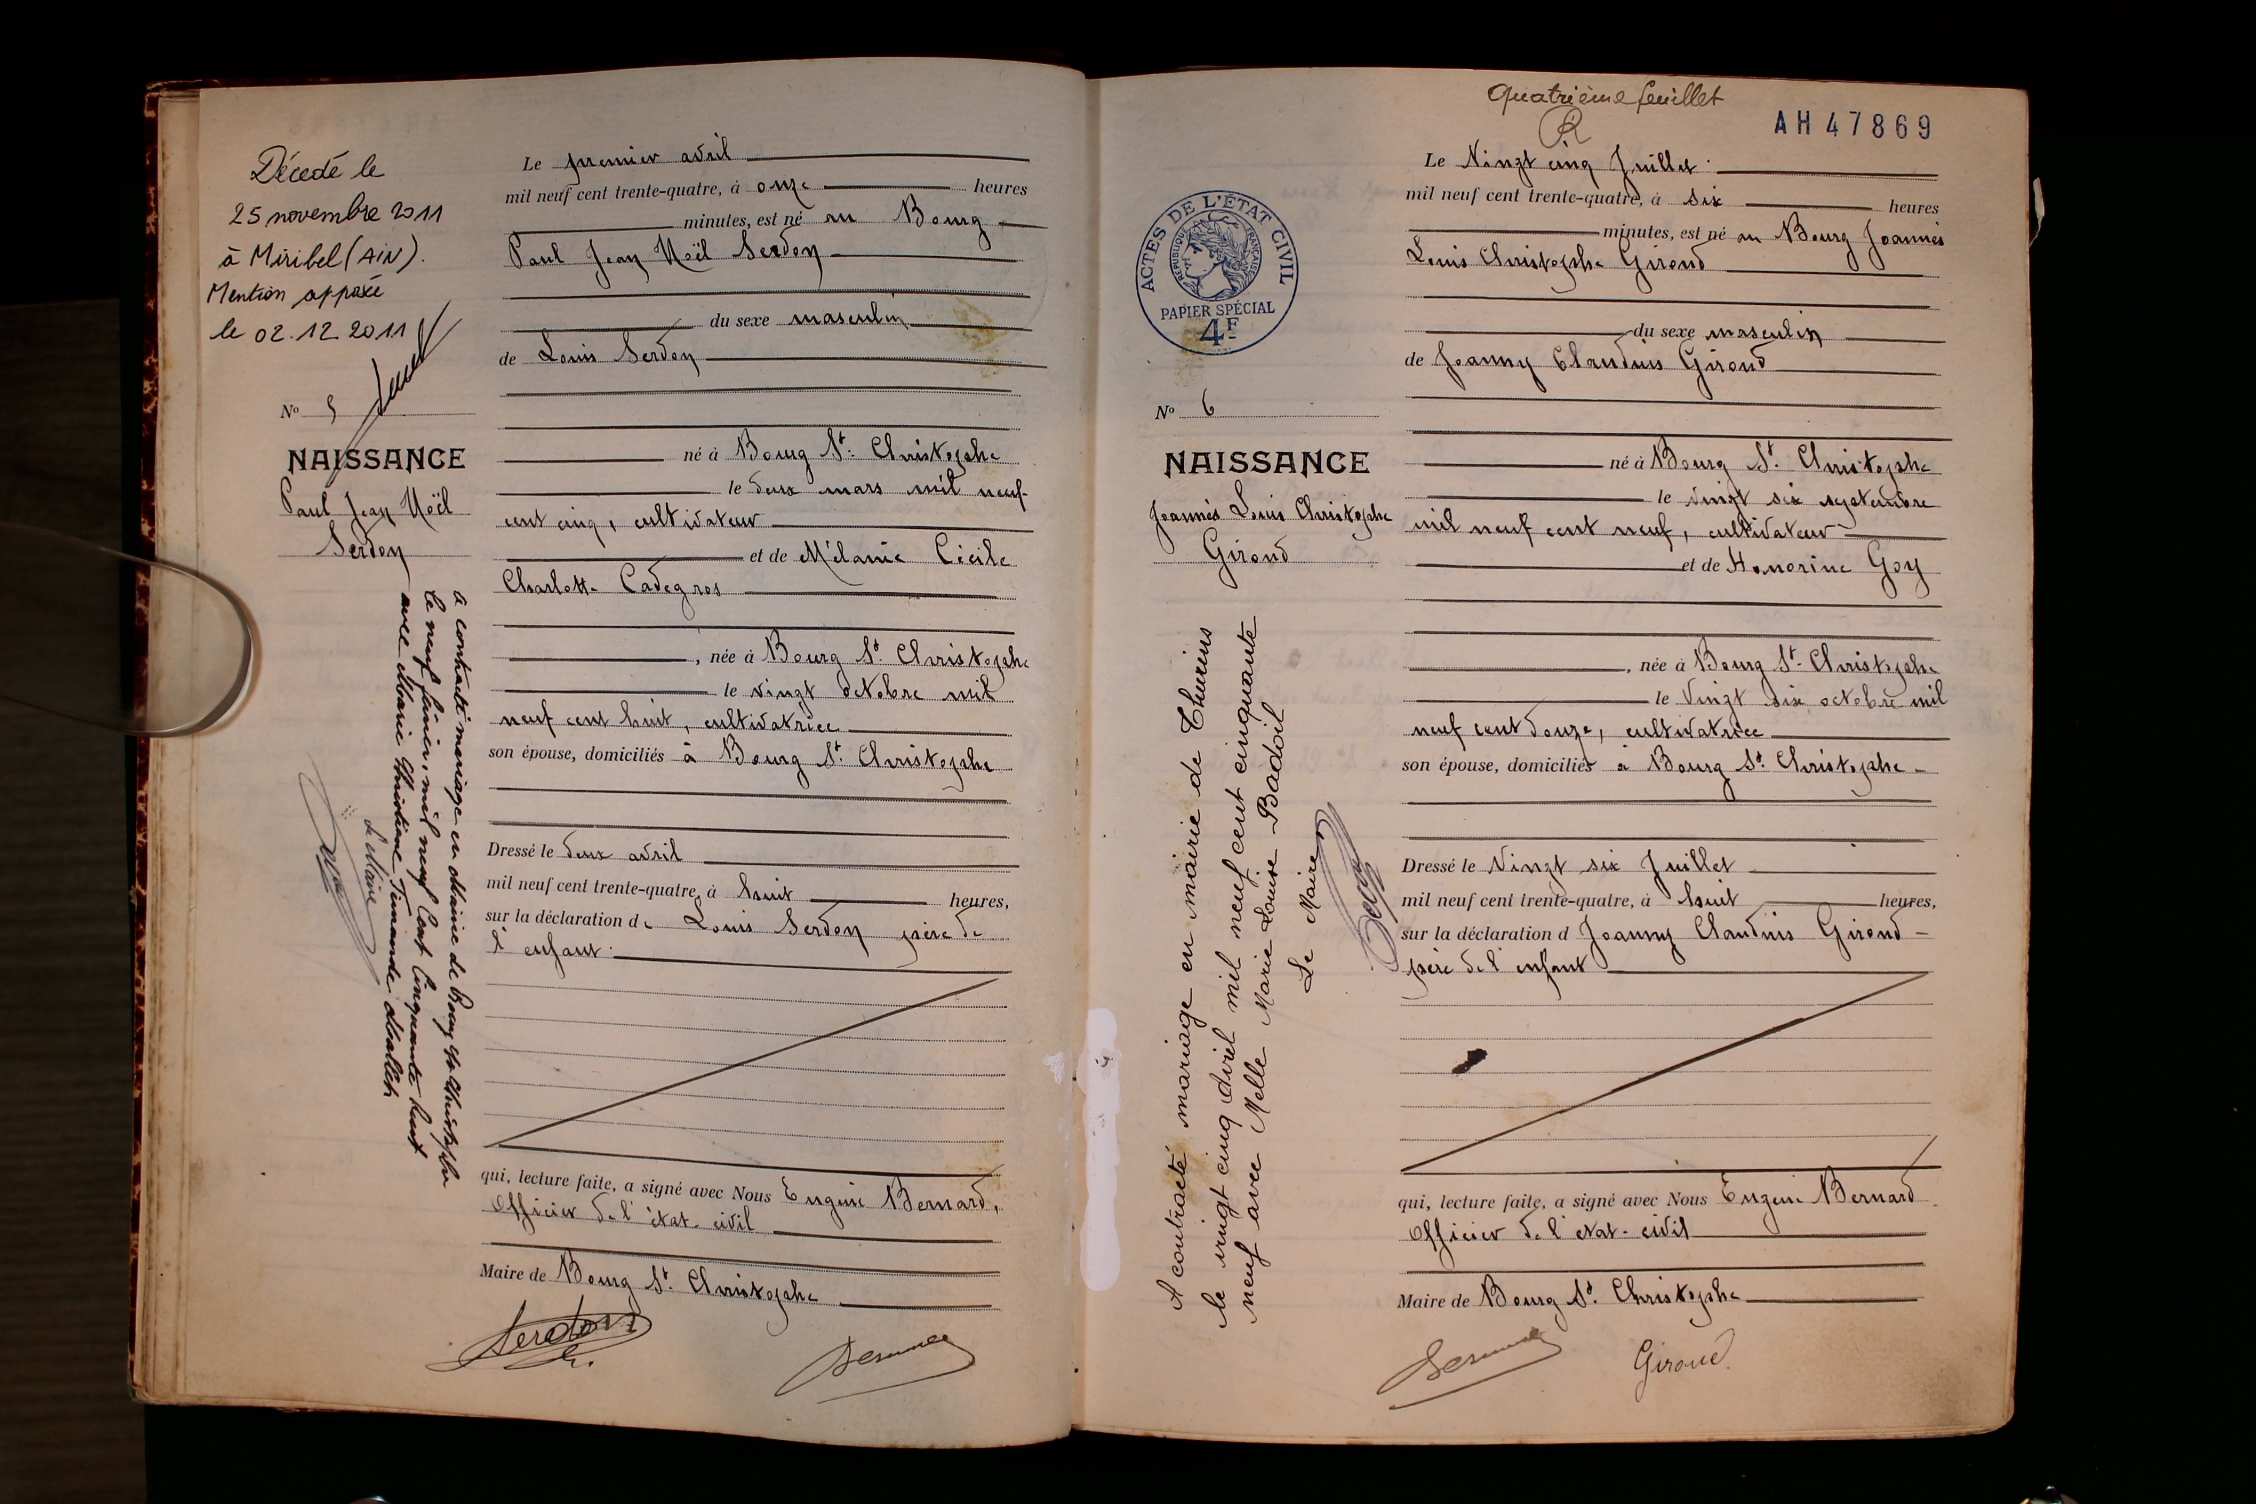 Décédé le
25 novembre 2011
à Miribel (AIN).
Mention apposée
le 02.12.2011
N° 5
NAISSANCE
Paul Jean Noël
Serdon
a contracté mariage en Mairie de Bourg St Christophe
le neuf janvier mil neuf cent cinquante huit
avec Marie Christiane Fernande
Le Maire
Le premier avril
mil neuf cent trente-quatre, à onze heures
minutes, est né au Bourg
Paul Jean Noël Serdon
du sexe masculin
de Louis Serdon
né à Bourg St. Christophe
le deux mars mil neuf
cent cinq, cultivateur
et de Mélanie Cécile
Charlotte Cadegros
, née à Bourg St. Christophe
le vingt octobre mil
neuf cent huit, cultivatrice
son épouse, domiciliés à Bourg St. Christophe
Dressé le deux avril
mil neuf cent trente-quatre, à huit heures,
sur la déclaration de Louis Serdon père de
l'enfant.
qui, lecture faite, a signé avec Nous Eugène Bernard,
Officier de l'état-civil
Maire de Bourg St. Christophe
Serdon
Quatrième feuillet
AH 47869
ACTES DE L'ÉTAT CIVIL
RÉPUBLIQUE FRANÇAISE
PAPIER SPÉCIAL
4F
N° 6
NAISSANCE
Joannès Louis Christophe
Giroud
A contracté mariage en mairie de Thurins
le vingt cinq avril mil neuf cent cinquante
neuf avec Melle Marie Louise Badoil
Le Maire
Le Vingt cinq Juillet
mil neuf cent trente-quatre, à six heures
minutes, est né au Bourg Joannès
Louis Christophe Giroud
du sexe masculin
de Joanny Claudius Giroud
né à Bourg St. Christophe
le vingt six septembre
mil neuf cent neuf, cultivateur
et de Honorine Goy
, née à Bourg St. Christophe
le Vingt six octobre mil
neuf cent douze, cultivatrice
son épouse, domiciliés à Bourg St. Christophe
Dressé le Vingt six Juillet
mil neuf cent trente-quatre, à huit heures,
sur la déclaration d Joanny Claudius Giroud
père de l'enfant
qui, lecture faite, a signé avec Nous Eugène Bernard
Officier de l'etat-civil
Maire de Bourg St. Christophe
Giroud